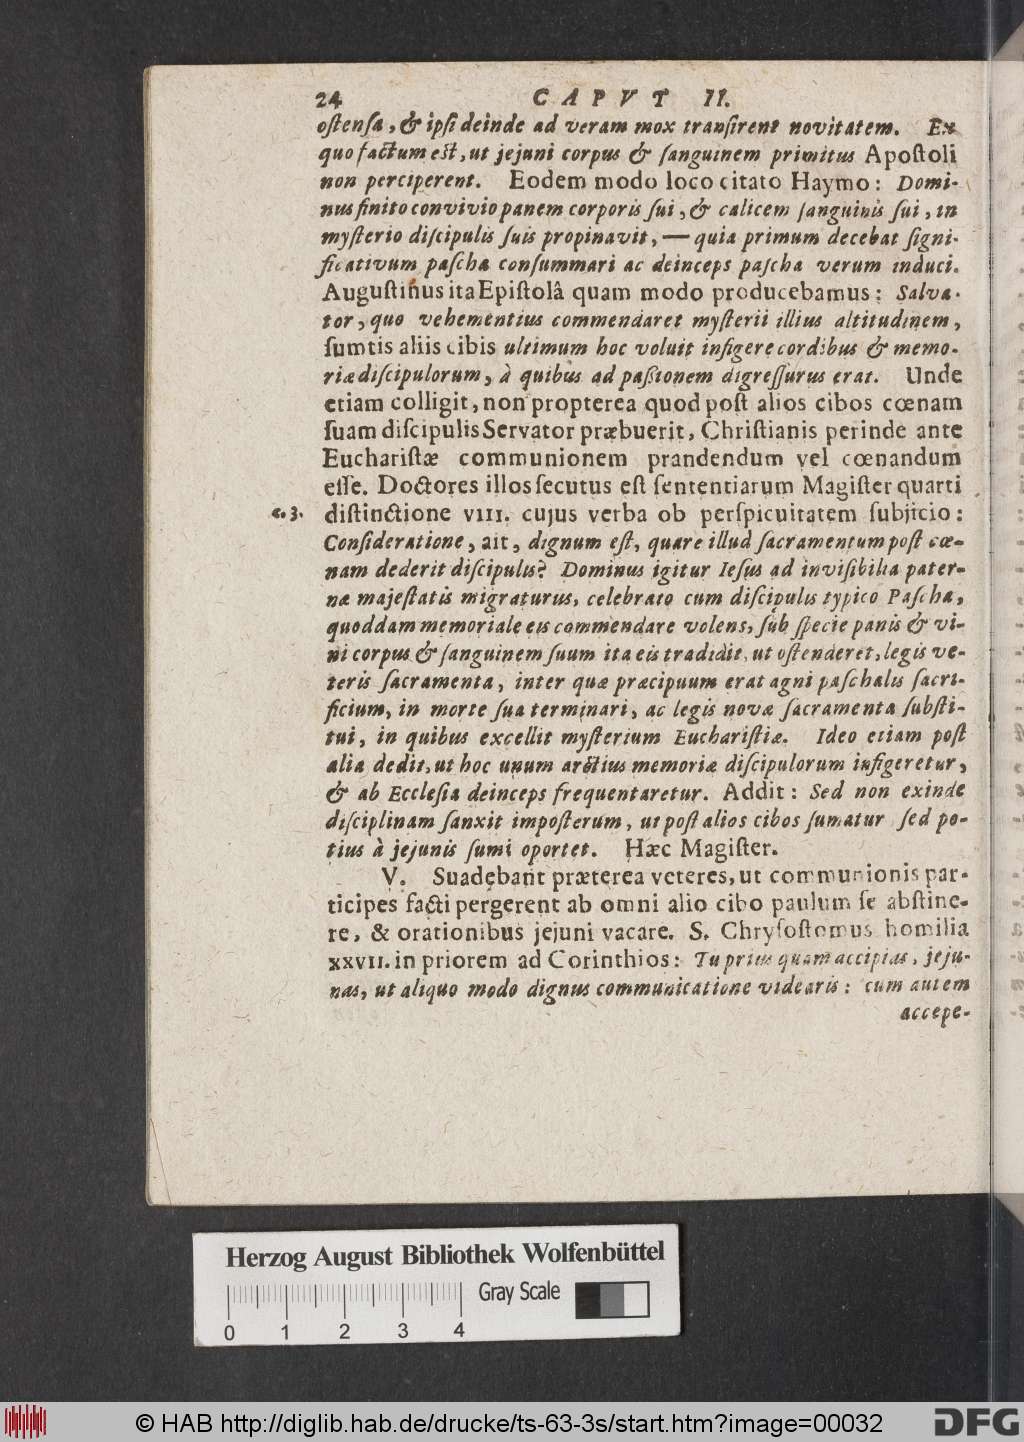 24 CAPVT II.
oſtenſa, & ipſi deinde ad veram mox tranſirent novitatem. Ex
quo factum eſt, ut jejuni corpus & ſanguinem primitus Apoſtoli
non perciperent. Eodem modo loco citato Haymo: Domi-
nus finito convivio panem corporis ſui, & calicem ſanguinis ſui, in
myſterio diſcipulis ſuis propinavit, — quia primum decebat ſigni-
ficativum paſcha conſummari ac deinceps paſcha verum induci.
Auguſtinus ita Epiſtolâ quam modo producebamus: Salva-
tor, quo vehementius commendaret myſterii illius altitudinem,
ſumtis aliis cibis ultimum hoc voluit infigere cordibus & memo-
riæ diſcipulorum, à quibus ad paßionem digreſſurus erat. Unde
etiam colligit, non propterea quod poſt alios cibos cœnam
ſuam diſcipulis Servator præbuerit, Chriſtianis perinde ante
Euchariſtæ communionem prandendum vel cœnandum
eſſe. Doctores illos ſecutus eſt ſententiarum Magiſter quarti
c. 3. diſtinctione VIII. cujus verba ob perſpicuitatem ſubjicio:
Conſideratione, ait, dignum eſt, quare illud ſacramentum poſt cœ-
nam dederit diſcipulis? Dominus igitur Ieſus ad inviſibilia pater-
næ majeſtatis migraturus, celebrato cum diſcipulis typico Paſcha,
quoddam memoriale eis commendare volens, ſub ſpecie panis & vi-
ni corpus & ſanguinem ſuum ita eis tradidit, ut oſtenderet, legis ve-
teris ſacramenta, inter quæ præcipuum erat agni paſchalis ſacri-
ficium, in morte ſua terminari, ac legis novæ ſacramenta ſubſti-
tui, in quibus excellit myſterium Euchariſtiæ. Ideo etiam poſt
alia dedit, ut hoc unum arctius memoriæ diſcipulorum infigeretur,
& ab Eccleſia deinceps frequentaretur. Addit: Sed non exinde
diſciplinam ſanxit impoſterum, ut poſt alios cibos ſumatur ſed po-
tius à jejunis ſumi oportet. Hæc Magiſter.
V. Suadebant præterea veteres, ut communionis par-
ticipes facti pergerent ab omni alio cibo paulum ſe abſtine-
re, & orationibus jejuni vacare. S. Chryſoſtomus homilia
XXVII. in priorem ad Corinthios: Tu prius quam accipias, jeju-
nas, ut aliquo modo dignus communicatione videaris: cum autem
accepe-
Herzog August Bibliothek Wolfenbüttel
Gray Scale
0 1 2 3 4
© HAB http://diglib.hab.de/drucke/ts-63-3s/start.htm?image=00032
DFG